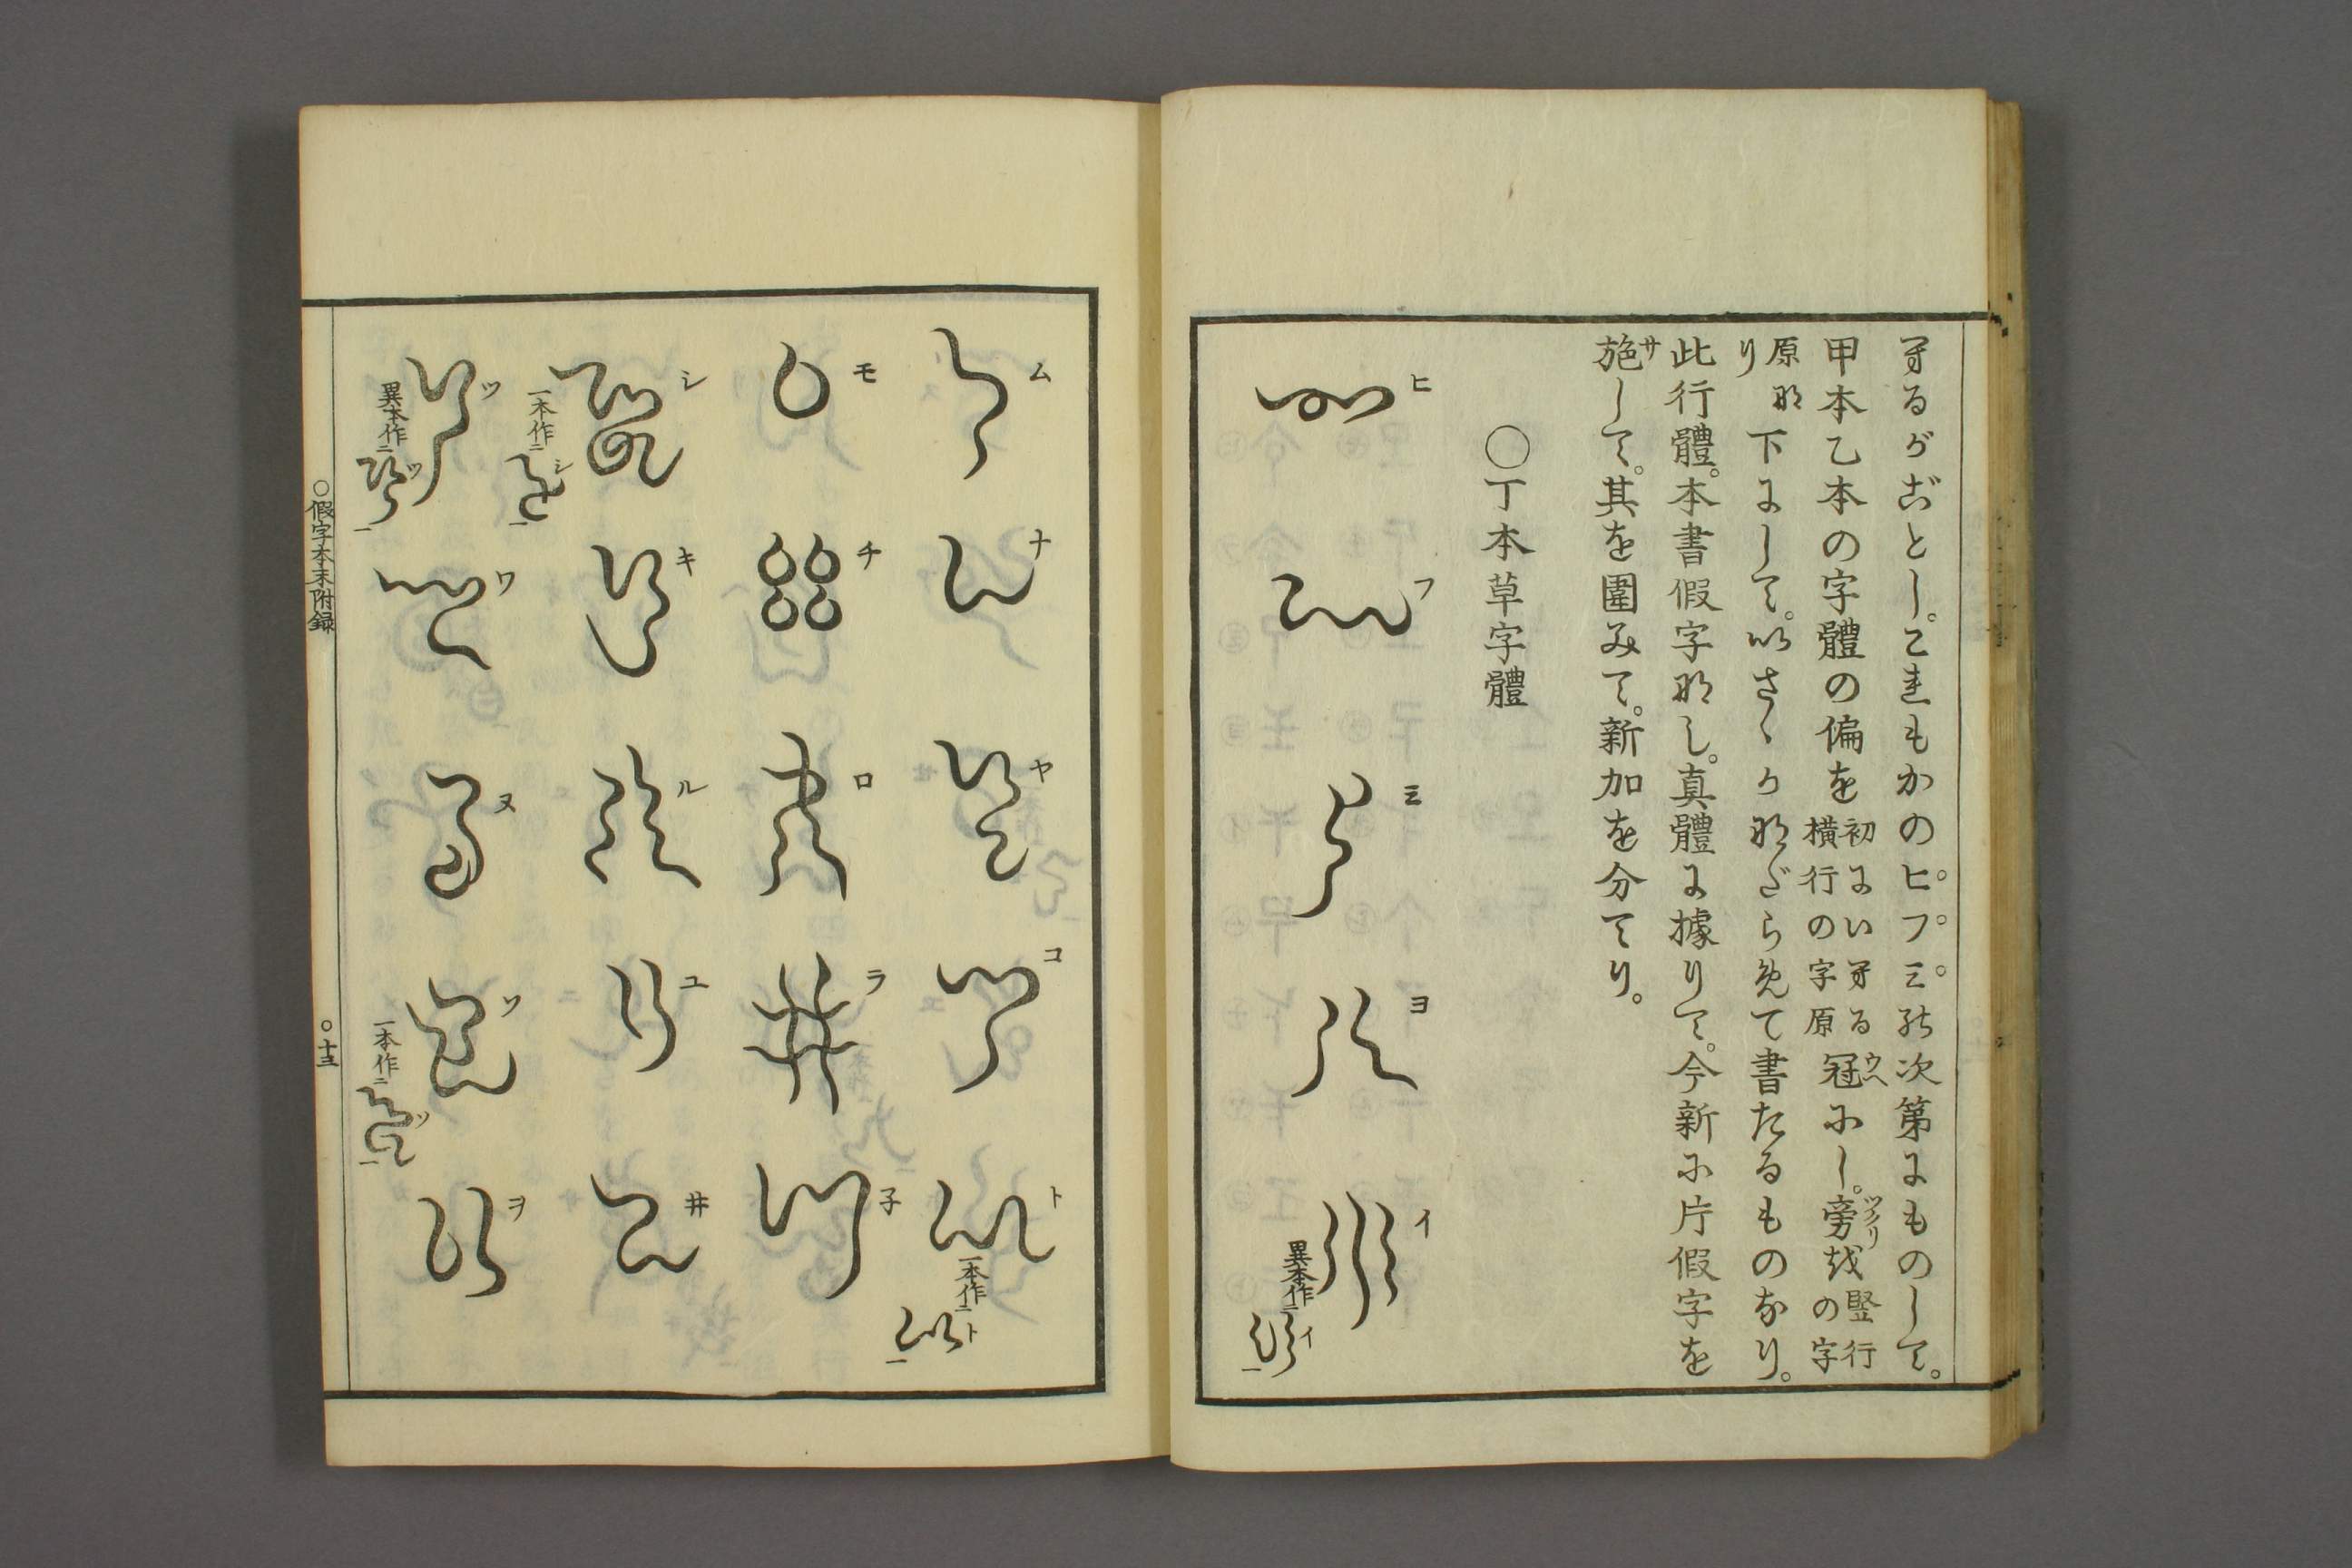 へるがごとし。これもかのヒ。フ。ミの次第にものして。
甲本乙本の字體の偏を初にいへる横行の字原冠にし。旁を竪行の字
原なり下にして。いさゝかなだらめて書たるものなり。
此行體。本書假字なし。真體に據りて。今新に片假字を
施して。其を圍みて。新加を分てり。
○丁本草字體
ヒ フ ミ ヨ イ 異本作ニ イ
ム ナ ヤ コ ト 一本作ニ ト
モ チ ロ ラ 子
シ 一本作ニ シ キ ル ユ 井
ツ 異本作ニ ツ ワ ヌ ソ 一本作ニ ソ ヲ
○假字本末附録 ○十三